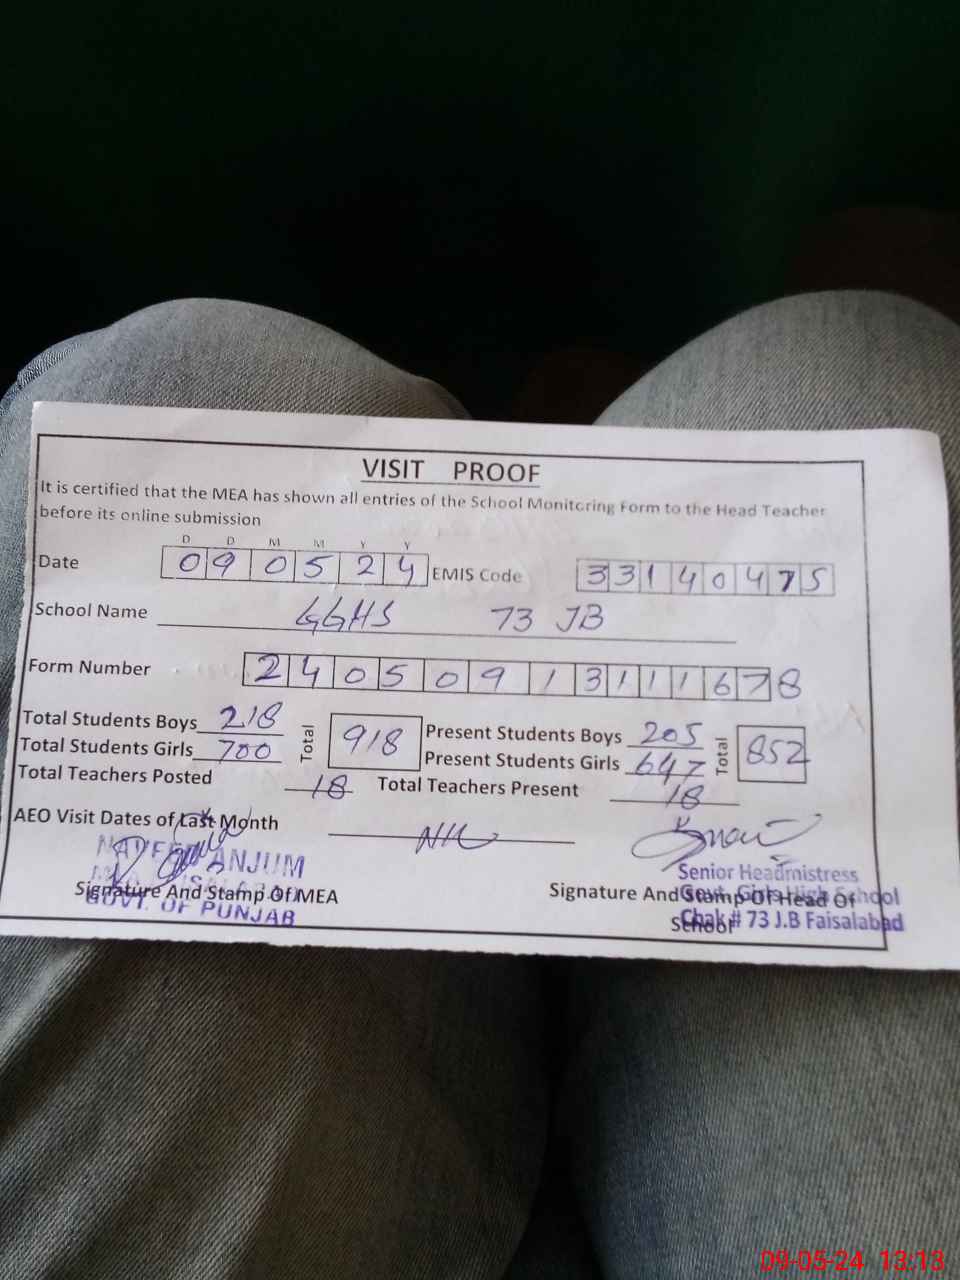 VISIT PROOF
It is certified that the MEA has shown all entries of the School Monitoring Form to the Head Teacher
before its online submission
D D M M Y Y
Date 090524 EMIS Code 33140475
School Name GGHS 73 JB
Form Number 2405091311678
Total Students Boys 218 Total 918 Present Students Boys 205 Total 852
Total Students Girls 700 Present Students Girls 647
Total Teachers Posted 18 Total Teachers Present 18
AEO Visit Dates of Last Month Nil
ANJUM
GOVT. OF PUNJAB
Signature And Stamp Of MEA
Senior Headmistress
Govt. Girls High School
Chak # 73 J.B Faisalabad
Signature And Stamp Of Head Of
School
09-05-24 13:13